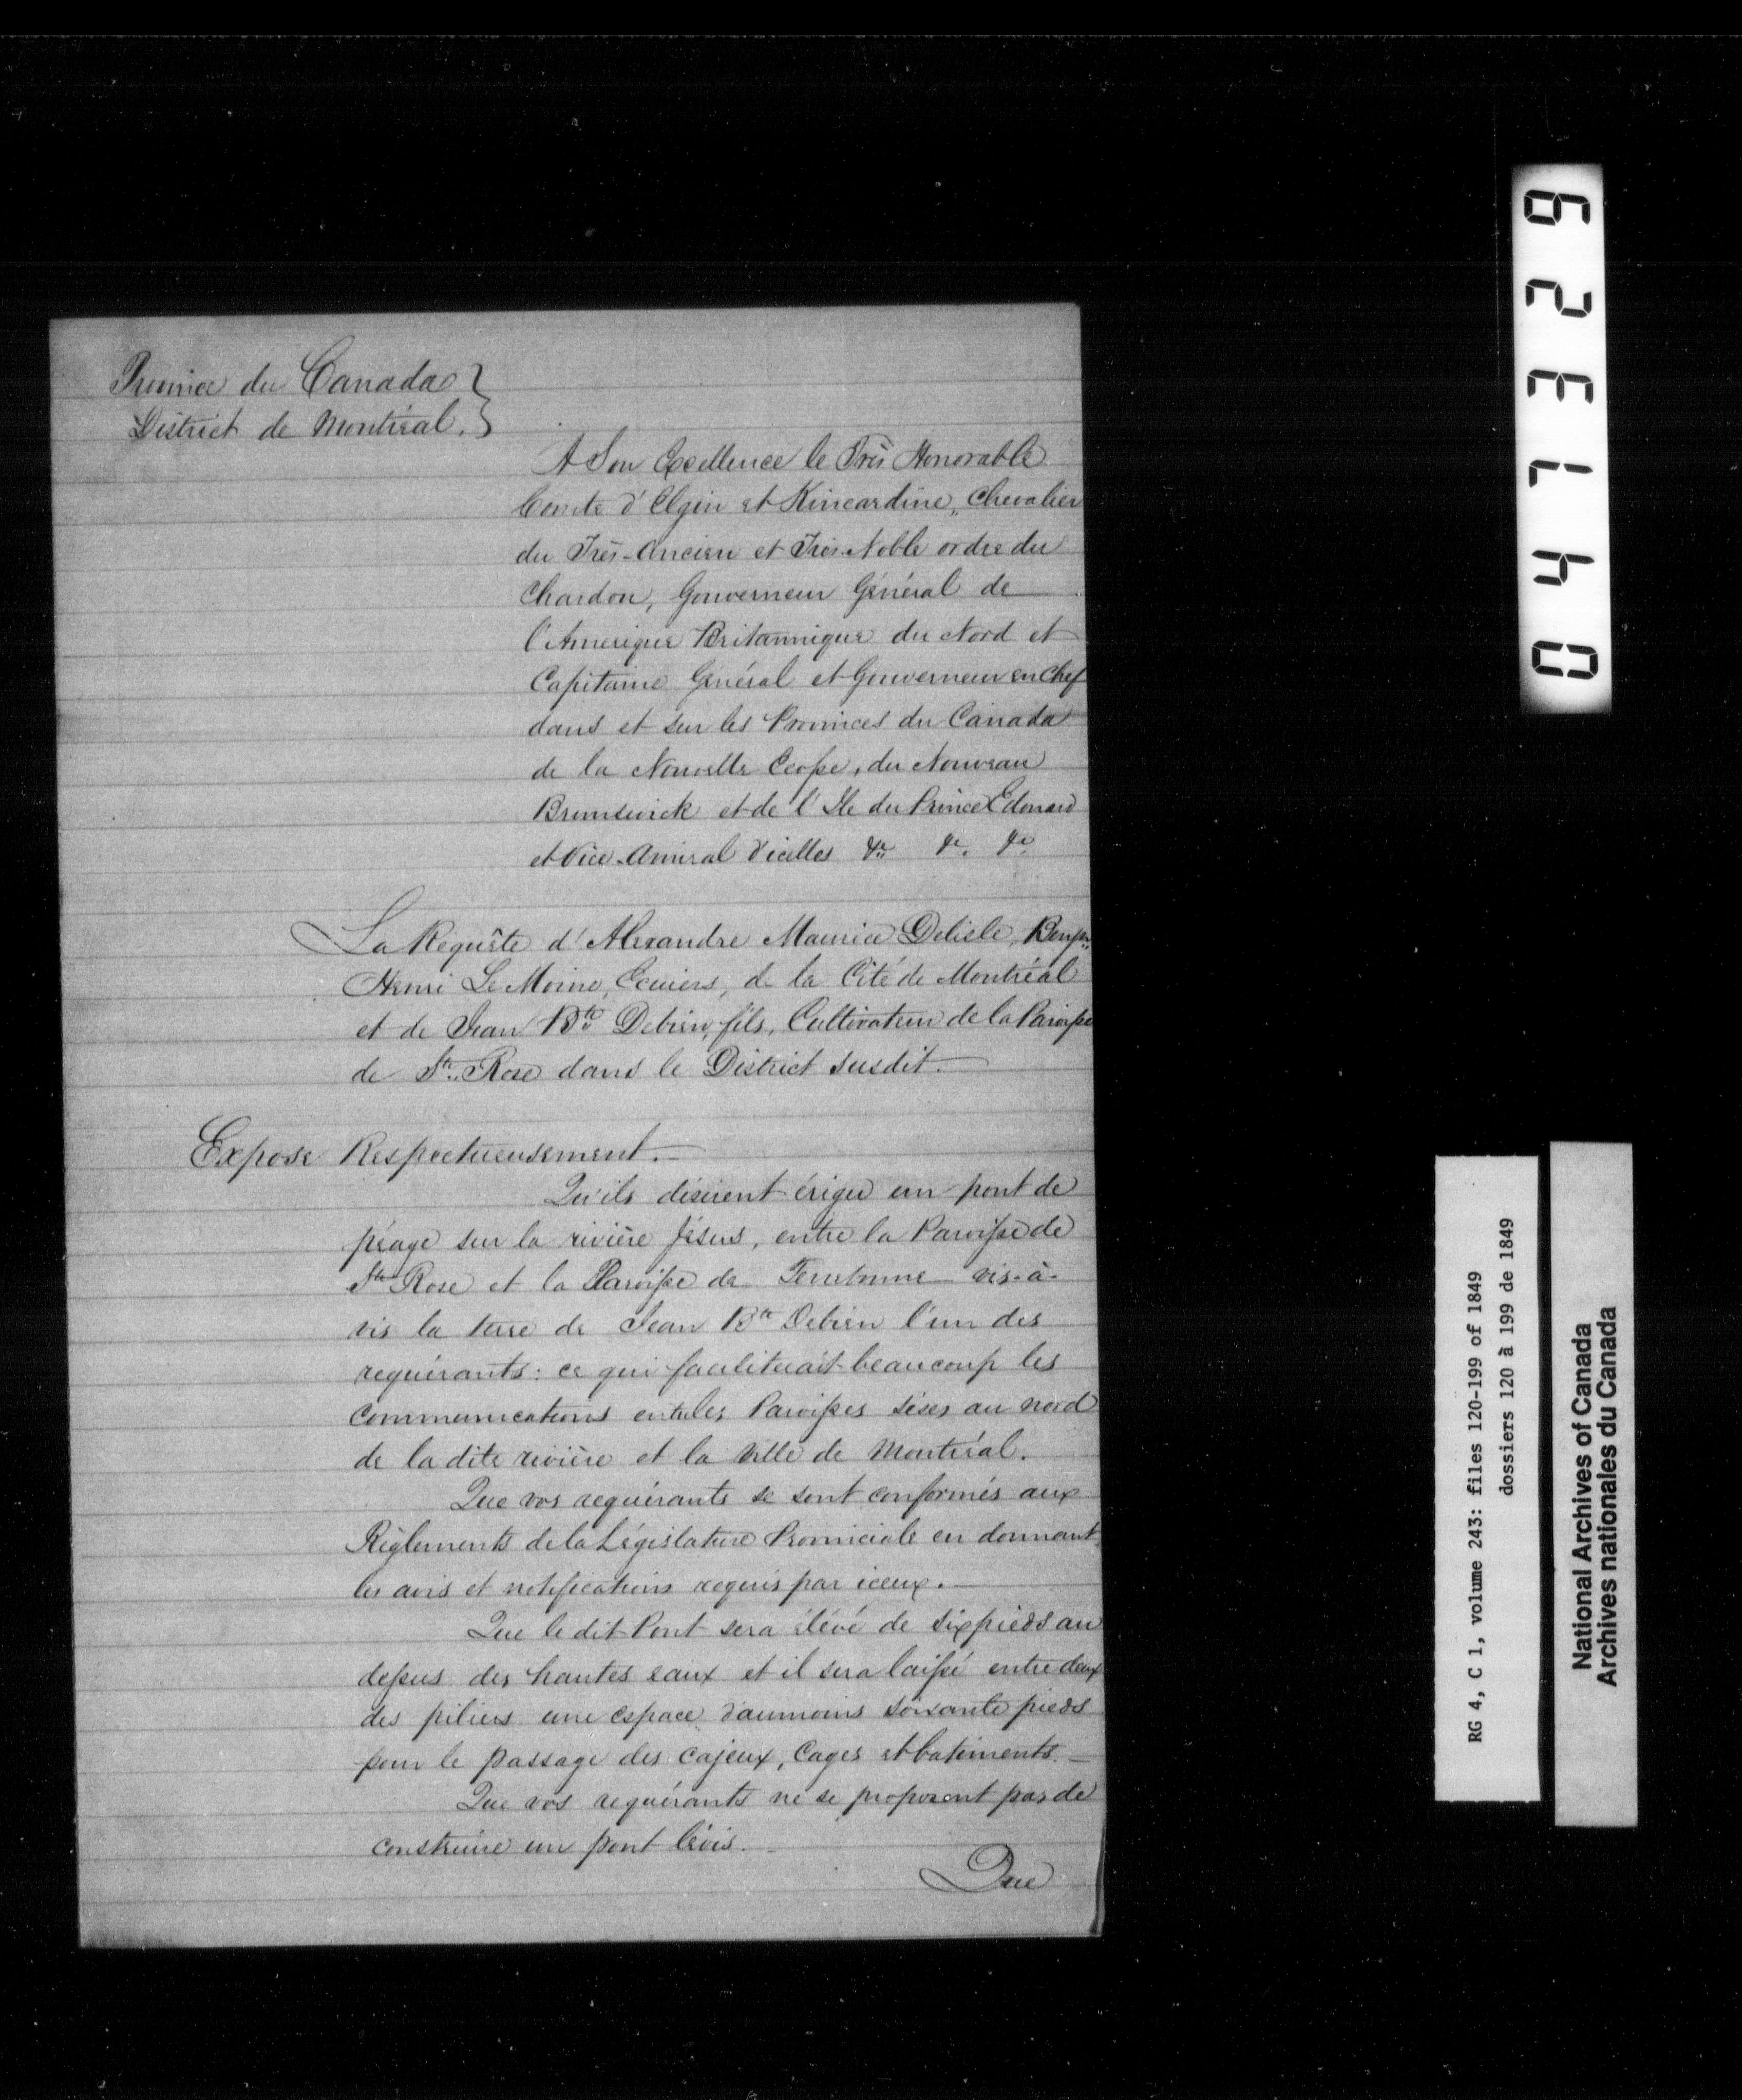 Province du Canada }
District de Montréal. }
A Son Excellence le Très Honorable
Comte d'Elgin et Kincardine, Chevalier
du Très-Ancien et Très-Noble ordre du
Chardon, Gouverneur Général de
l'Amerique Britannique du Nord et
Capitaine Général et Gouverneur en Chef
dans et sur les Provinces du Canada
de la Nouvelle Ecosse, du Nouveau
Brunswick et de l'Ile du Prince Edouard
et Vice-Amiral d'icelles &c. &c. &c.
La Requête d'Alexandre Maurice Delisle, Benjn.
Henri Le Moine, Ecuiers, de la Cité de Montréal
et de Jean Bte Debien, fils, Cultivateur de la Paroisse
de Ste. Rose dans le District susdit.
Expose Respectueusement.
Qu'ils désirent ériger un pont de
péage sur la rivière Jésus, entre la Paroisse de
Ste Rose et la Paroisse de Terrebonne vis-à-
vis la terre de Jean Bte Debien l'un des
requérants: ce qui faciliterait beaucoup les
communications entre les Paroisses sises au nord
de la dite rivière et la Ville de Montréal.
Que vos requérants se sont conformés aux
Règlements de la Législature Provinciale en donnant
les avis et notifications requis par iceux.
Que le dit Pont sera élévé de six pieds au
dessus des hautes eaux et il sera laissé entre deux
des piliers une espace d'aumoins soixante pieds
pour le passage des cajeux, Cages et batiments.
Que vos requérants ne se proposent pas de
construire un pont lévis.
Que
047329
RG 4, C 1, volume 243: files 120-199 of 1849
dossiers 120 à 199 de 1849
National Archives of Canada
Archives nationales du Canada